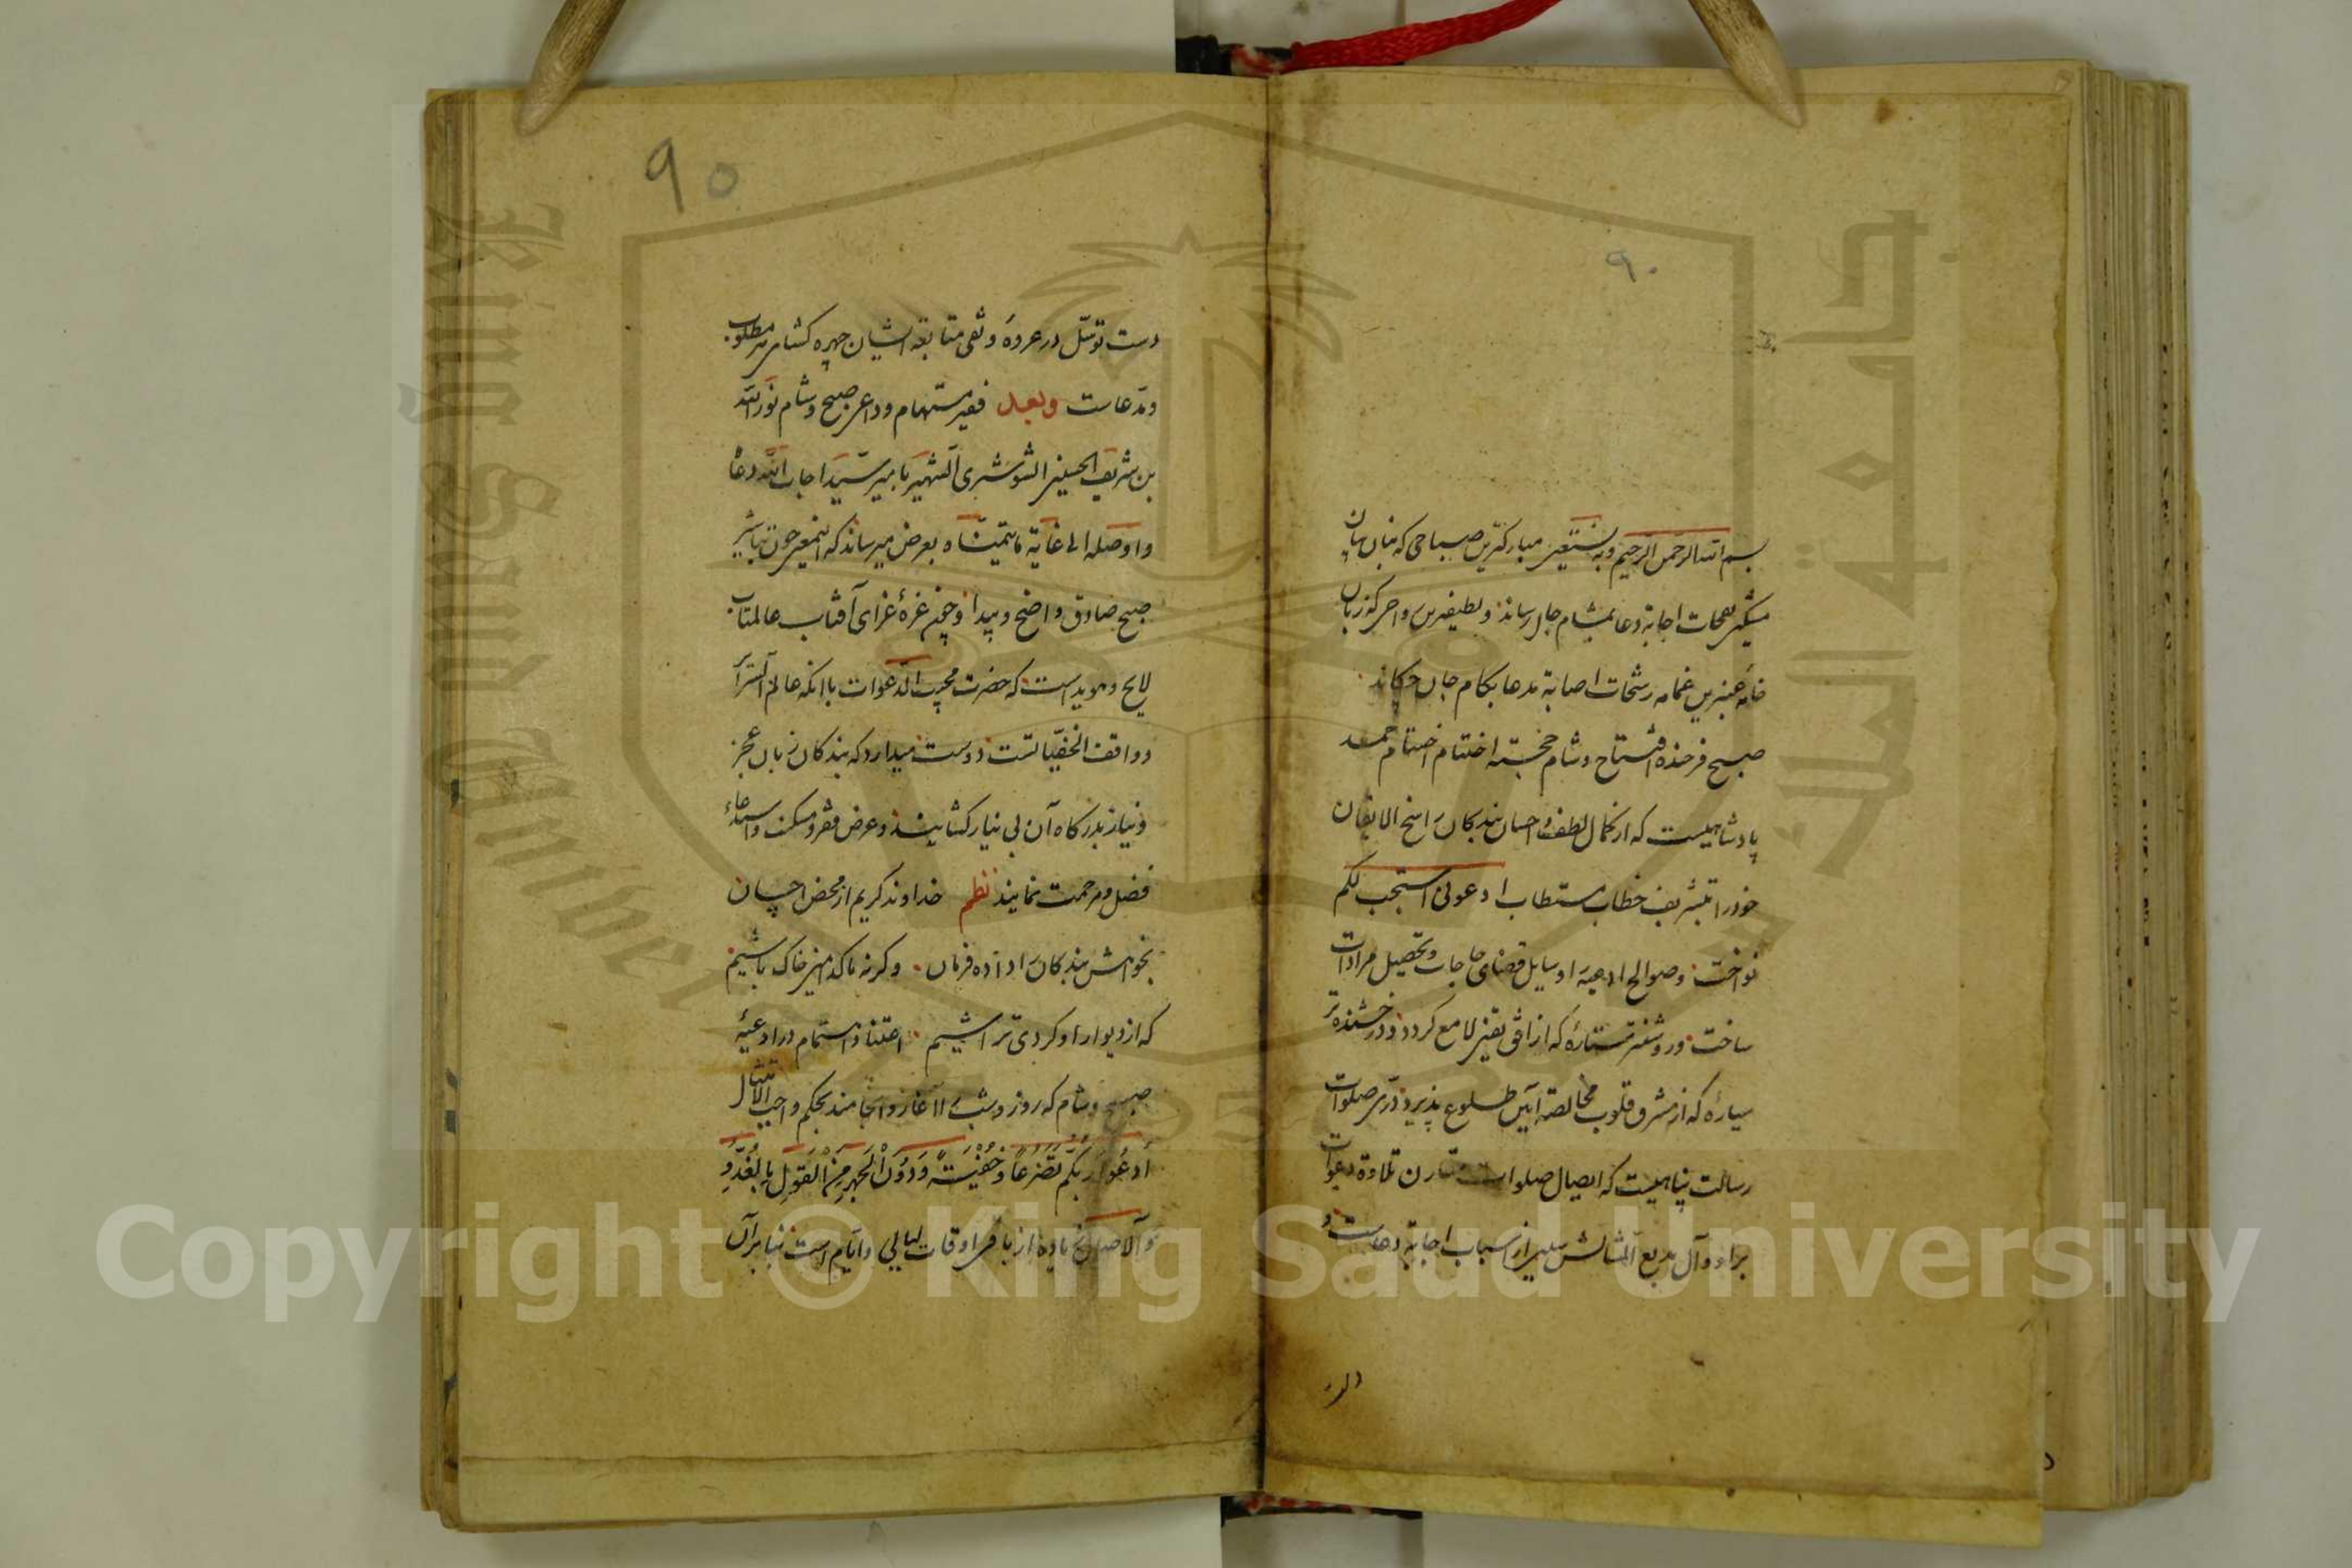 ٩٠
بسم الله الرحمن الرحیم وبه نستعین مبارکترین صباحی که بنان بیان
مشکین نفحات اجابة دعا بمشام جان رساند و لطیفترین رواحی که زبان
خامهٔ عنبرین غمامه رشحات اصابة مدعا بکام جان چکاند
صبح فرخنده افتتاح و شام خجسته اختتام حمد
پادشاهیست که از کمال لطف و احسان بندکان راسخ الایقان
خود را بتشریف خطاب مستطاب ادعونی استجب لکم
نواخت و صوالح ادعیه را وسایل قضای حاجات و تحصیل مرادات
ساخت و روشنتر ستارهٔ که از افق یقین لامع کردد و درخشنده تر
سیارهٔ که از مشرق قلوب مخالصة آیین طلوع پذیرد درّی صلوات
رسالت پناهیست که ایصال صلوات تلاوة دعوات
بر او و آل بدیع المثالش از اسباب اجابة دعاست و
90
دست توسّل در عروهٔ وثقی متابعة ایشان چهره کشای مطلوب
و مدّعاست وبعد فقیر مستهام و داعی صبح و شام نور الله
بن شریف الحسینی الشوشتری الشهیر بامیر سیّد اجاب الله دعاه
و اوصله الی غایة ما یتمنّاه بعرض میرساند که اینمعنی چون تباشیر
صبح صادق واضح و پیدا و چون غرهٔ غرای آفتاب عالمتاب
لایح و هویداست که حضرت مجیب الدعوات با انکه عالم السرآیر
و واقف الخفیّاتست دوست میدارد که بندکان زبان عجز
و نیاز بدرکاه آن بی نیاز کشایند و عرض فقر و مسکنت و استدعاء
فضل و مرحمت نمایند نظم خداوند کریم از محض احسان
بخواهش بندکان را داده فرمان وکرنه ما کدامین خاک باشیم
که از دیوار او کردی تراشیم اعتنا و اهتمام در ادعیهٔ
صبح و شام که روز و شب را آغاز و انجامند بحکم واجب الامتثال
اُدعُوا رَبَّکُم تَضَرُّعاً وَخُفْیَةً وَدُونَ الجَهرِ مِنَ القَولِ بِالغُدُوِّ
وَالآصالِ زیاده از باقی اوقات لیالی و ایّام است بنابر آن
Copyright © King Saud University